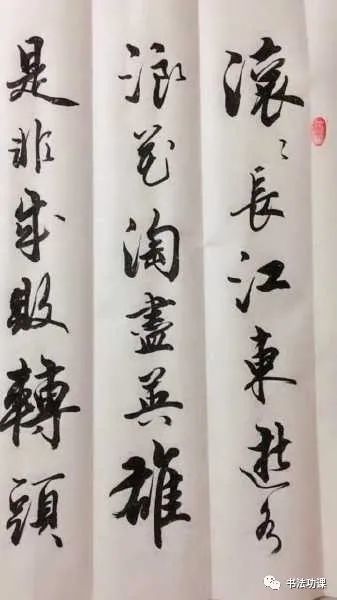 滚〻長江東逝水
浪花淘盡英雄
是非成敗轉頭
书法功课